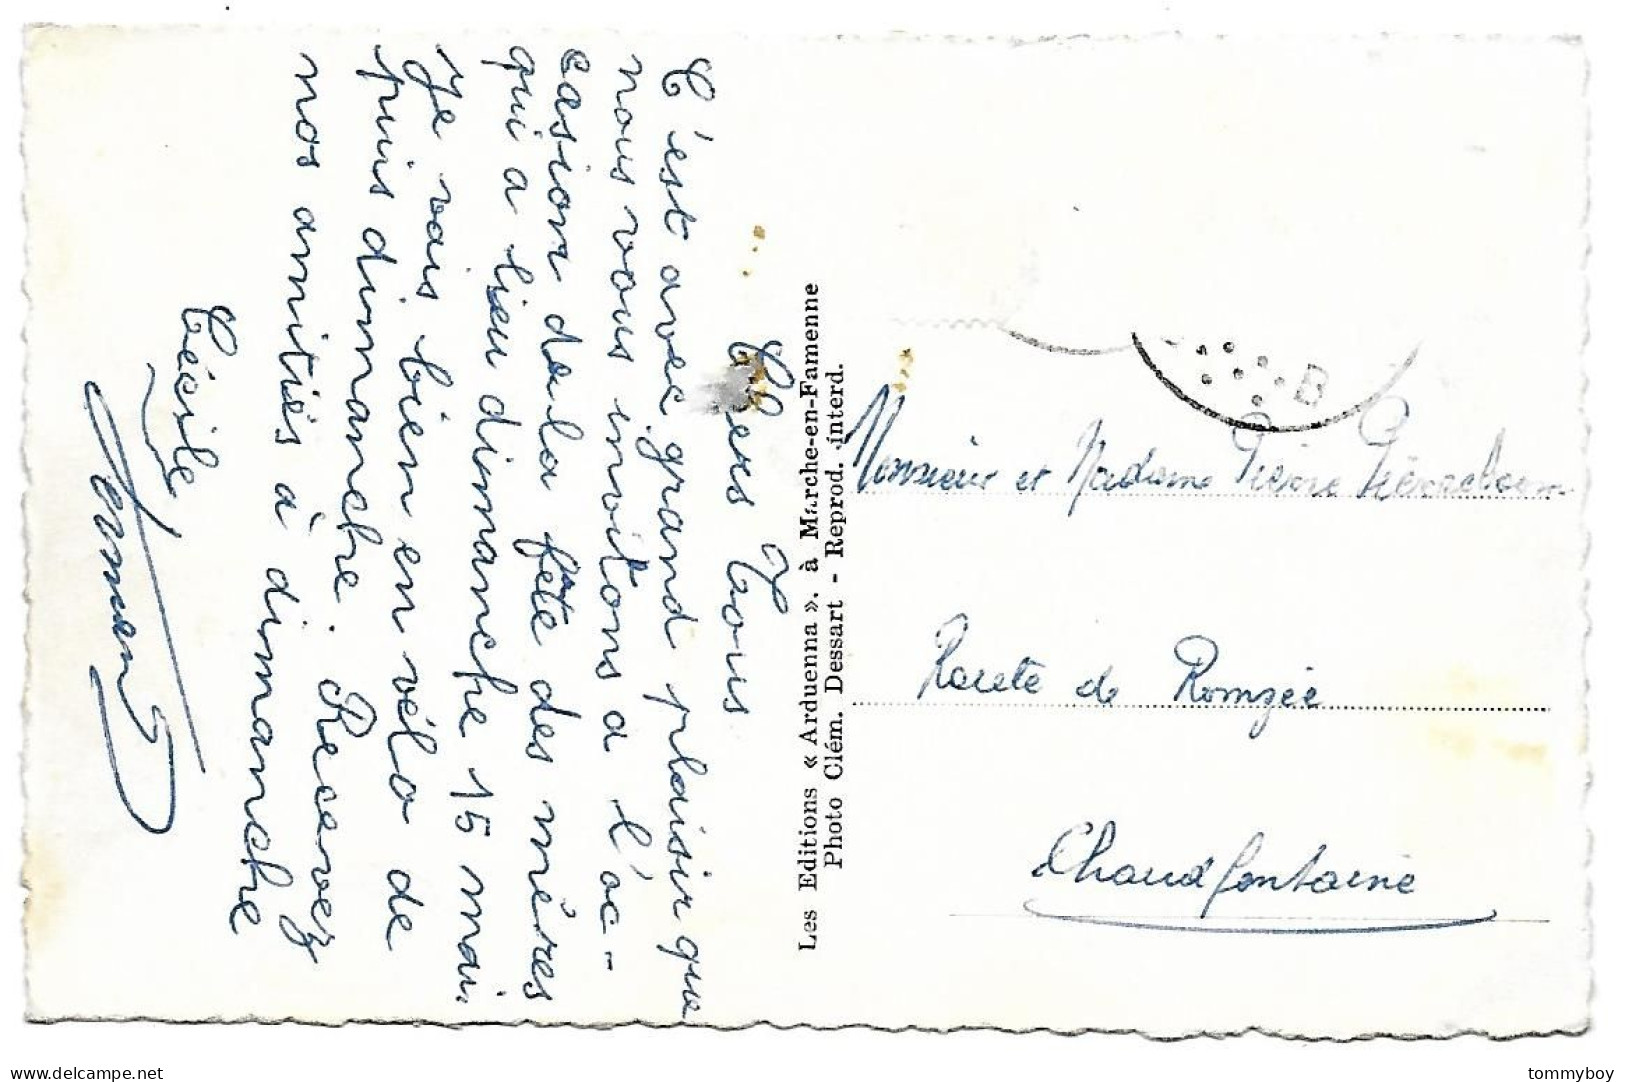 Chers Tous
C'est avec grand plaisir que
nous vous invitons à l'oc-
casion de la fête des mères
qui a lieu dimanche 15 mai.
Je vais bien en vélo de
puis dimanche. Recevez
nos amitiés à dimanche
Cécile
Les Editions « Arduenna ». à Marche-en-Famenne
Photo Clém. Dessart - Reprod. interd.
B
Monsieur et Madame Pierre
Route de Romzée
Chaudfontaine
delcampe.net
tommyboy